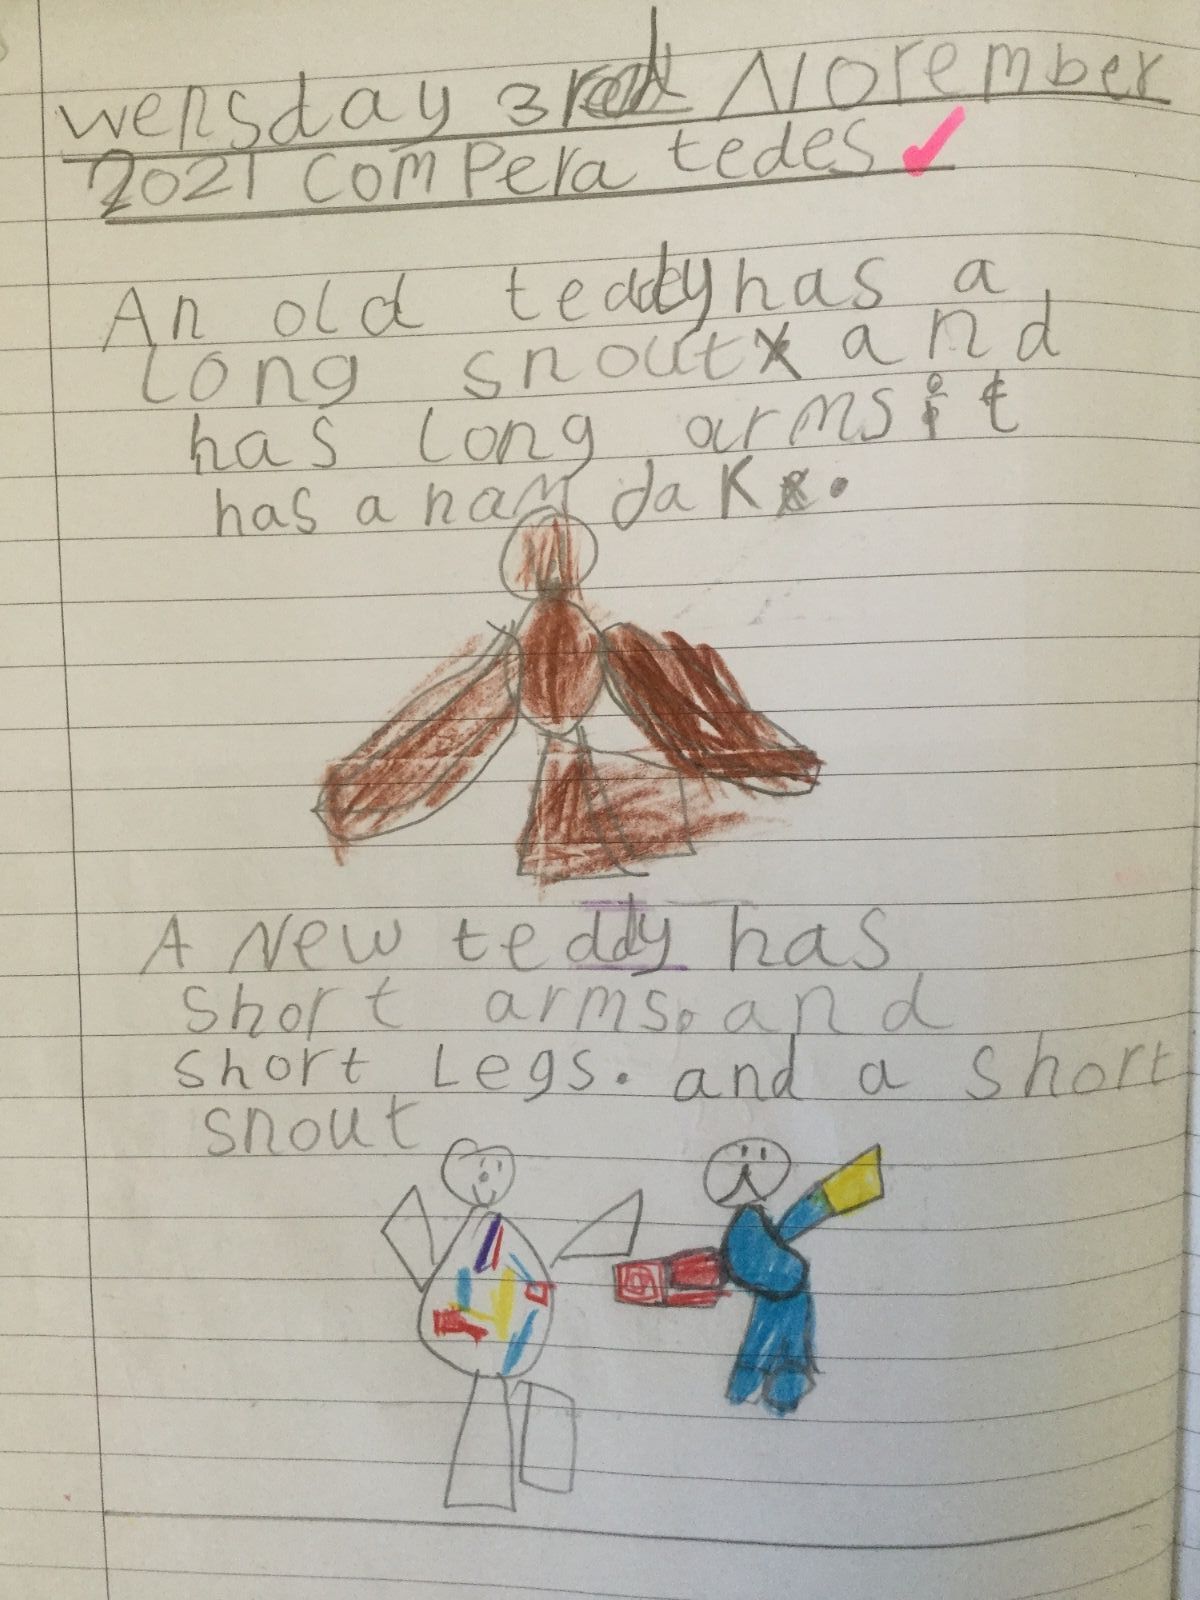 Wensday 3rd November
2021 compera tedes
An old teddy has a
long snout and
has long arms it
has a nam dak.
A New teddy has
short arms. and
short Legs. and a short
snout